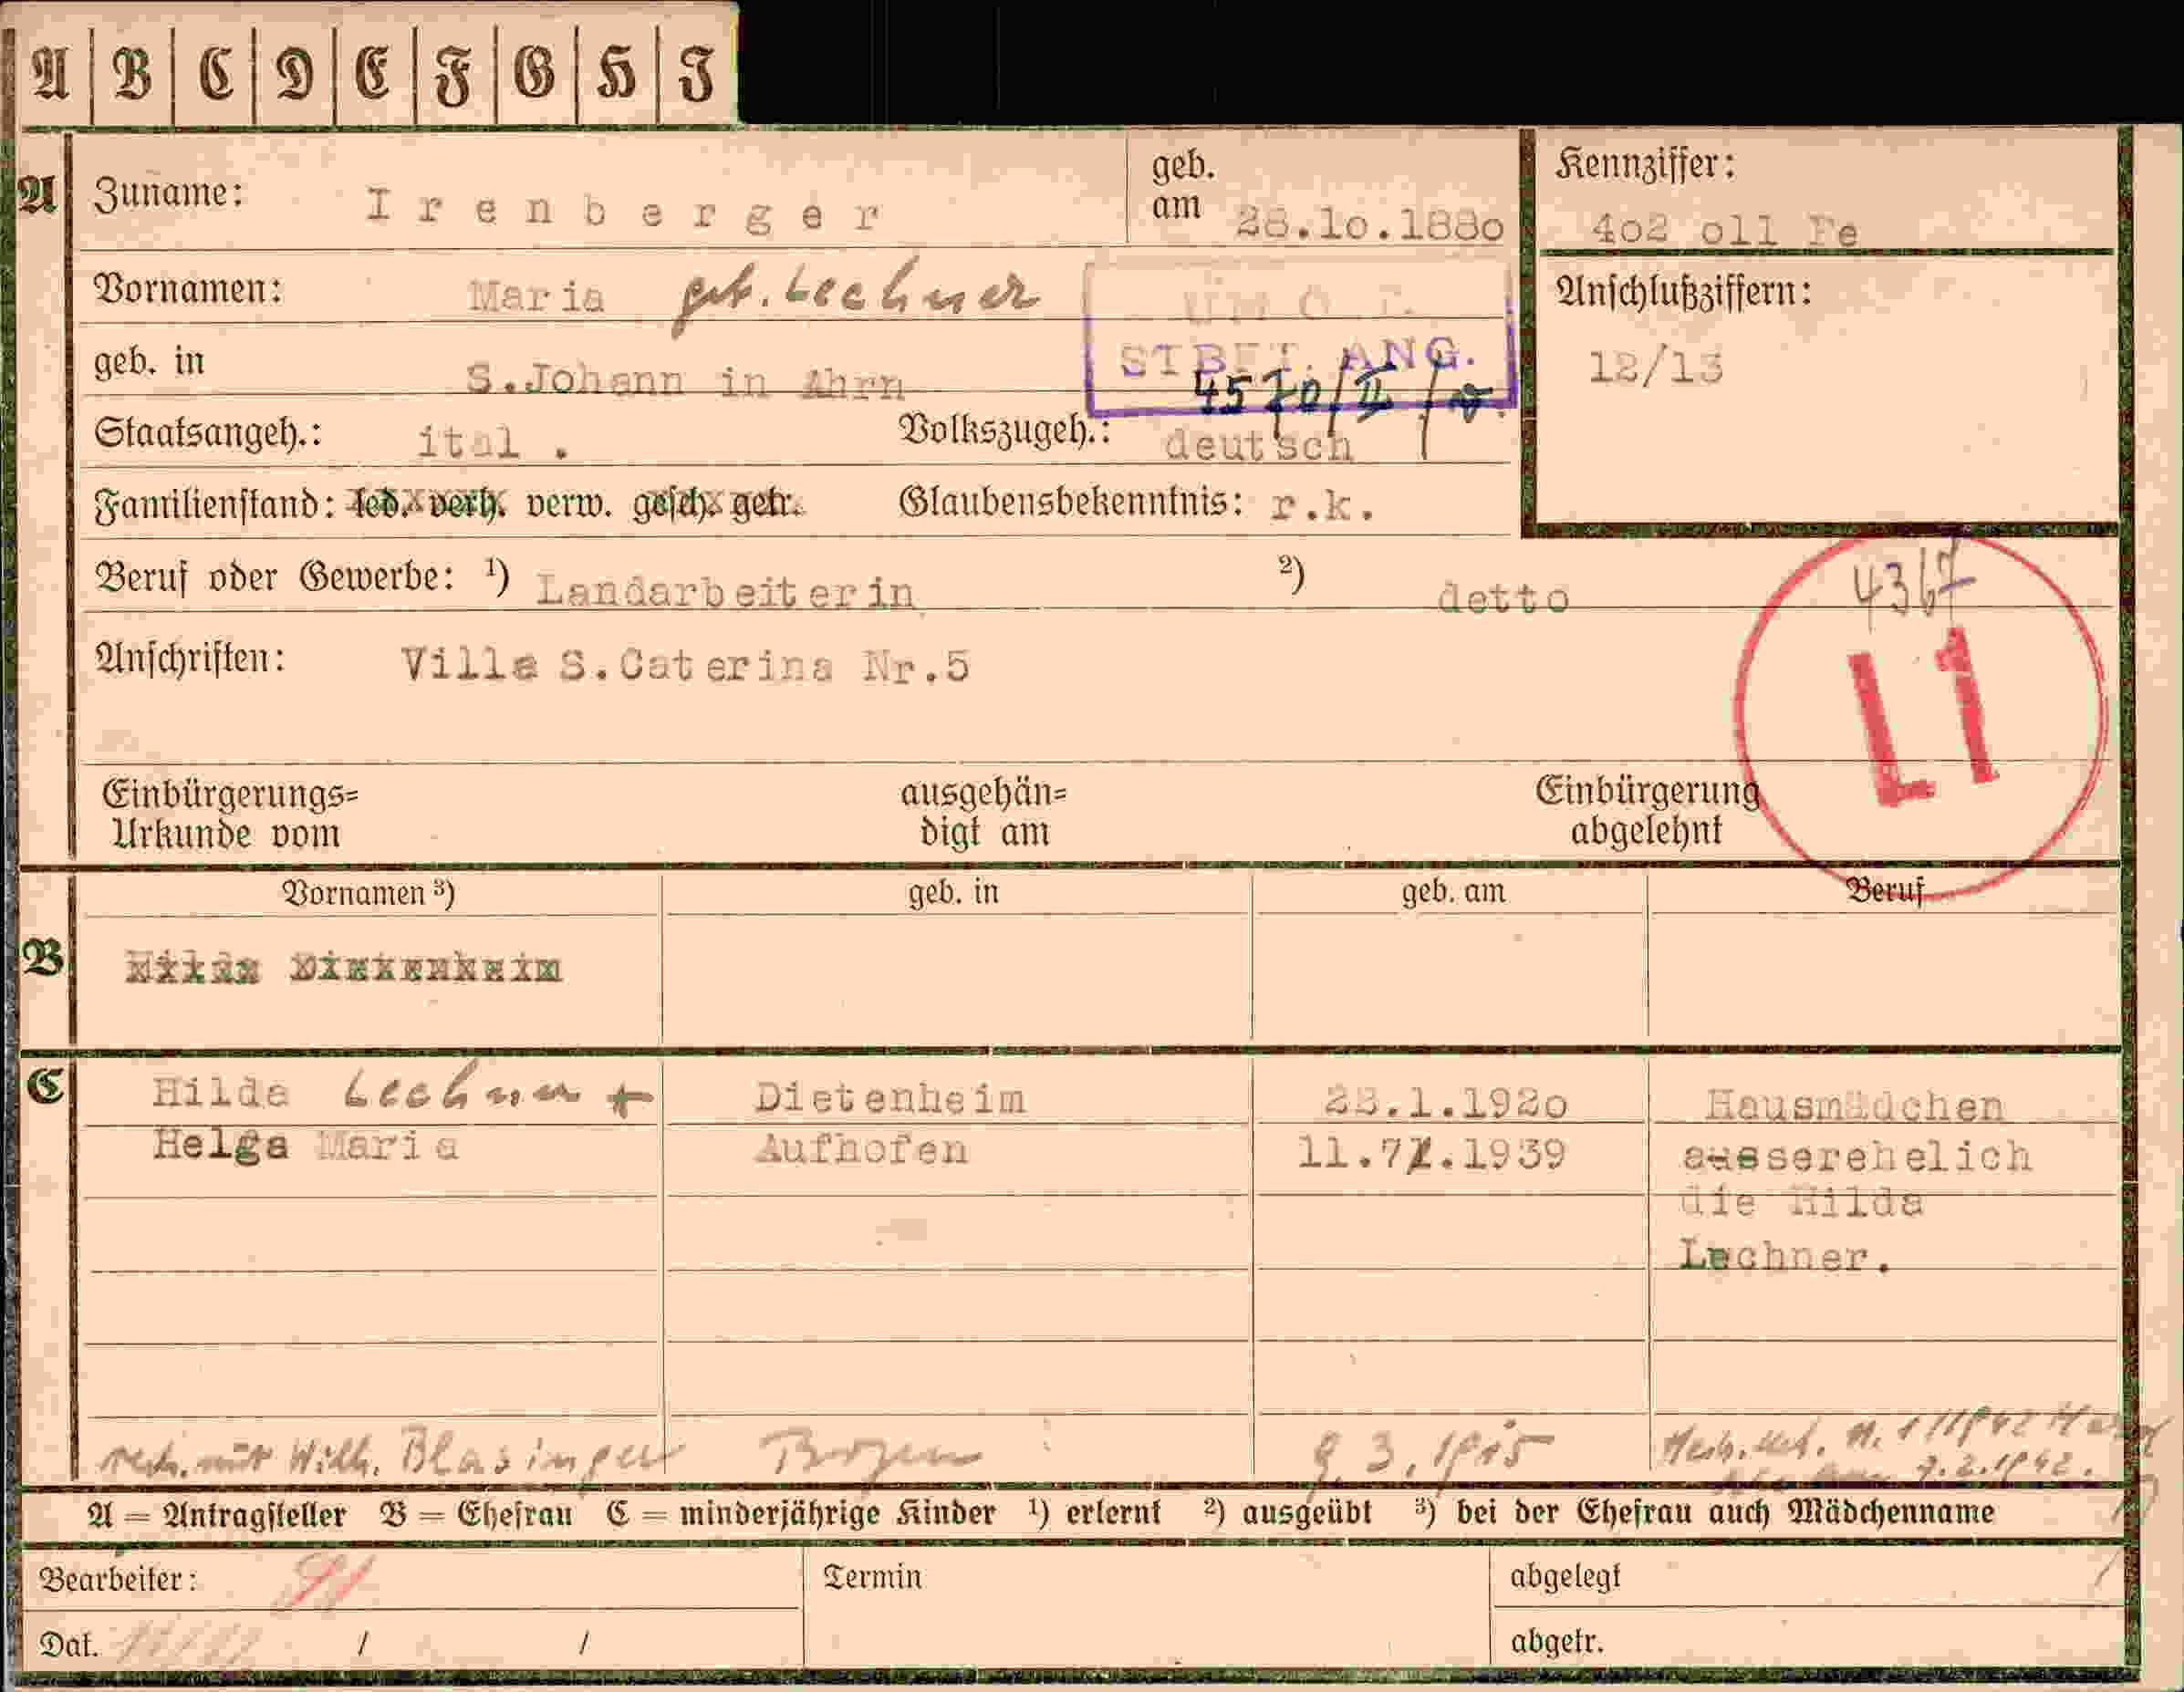 A B C D E F G H I
A
Zuname: Irenberger
geb. am 28.10.1880
Kennziffer:
402 011 Fe
Vornamen: Maria geb. Lechner
Anschlußziffern:
12/13
geb. in S.Johann in Ahrn
STBET. ANG.
4570/II
Staatsangeh.: ital. Volkszugeh.: deutsch
Familienstand: led. verh. verw. gesch. getr. Glaubensbekenntnis: r.k.
Beruf oder Gewerbe: ¹) Landarbeiterin ²) detto
4367
L1
Anschriften: Villa S.Caterina Nr.5
Einbürgerungs= Urkunde vom
ausgehän= digt am
Einbürgerung abgelehnt
Vornamen ³) geb. in geb. am Beruf
B
Hilda Dietenheim
C
Hilda Lechner Dietenheim 28.1.1920 Hausmädchen
Helga Maria Aufhofen 11.7.1939 ausserehelich
die Hilda
Lechner.
mit Wilh. Blasinger Bozen 9.3.1915
7.2.1942.
A = Antragsteller B = Ehefrau C = minderjährige Kinder ¹) erlernt ²) ausgeübt ³) bei der Ehefrau auch Mädchenname
Bearbeiter:
Termin
abgelegt
Dat. / /
abgetr.